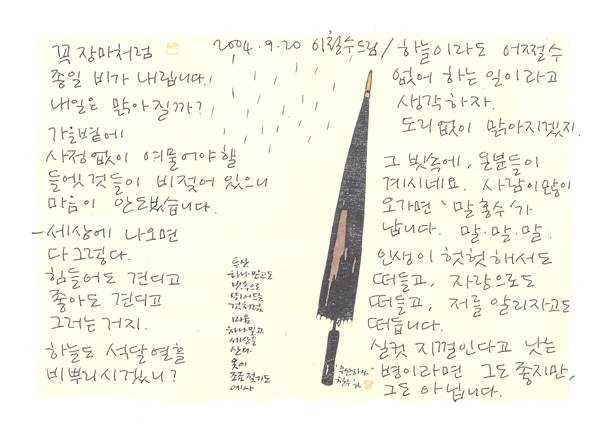 꼭 장마처럼
종일 비가 내립니다.
내일은 맑아질까?
가을볕에
사정없이 여물어야할
들에것들이 비젖어 있으니
마음이 안돼봤습니다.
-세상에 나오면
다 그렇다.
힘들어도 견디고
좋아도 견디고
그러는거지.
하늘도 석달열흘
비뿌리시겠니?
우산
하나 믿고도
빗속으로
뛰어드는
것처럼
마음
하나 믿고
세상을
산다.
옷이
조금 젖기도
예사
2004.9.20 이철수드림/
하늘이라도 어쩔수
없어 하는 일이라고
생각하자.
도리없이 맑아지겠지.
그 빗속에, 온분들이
계시네요. 사람이많이
오가면 '말홍수'가
납니다. 말·말·말.
인생이 헛헛해서도
떠들고, 자랑으로도
떠들고, 저를 알리자고도
떠듭니다.
실컷 지껄인다고 낫는
병이라면 그도 좋지만,
그도 아닙니다.
'우산하나'